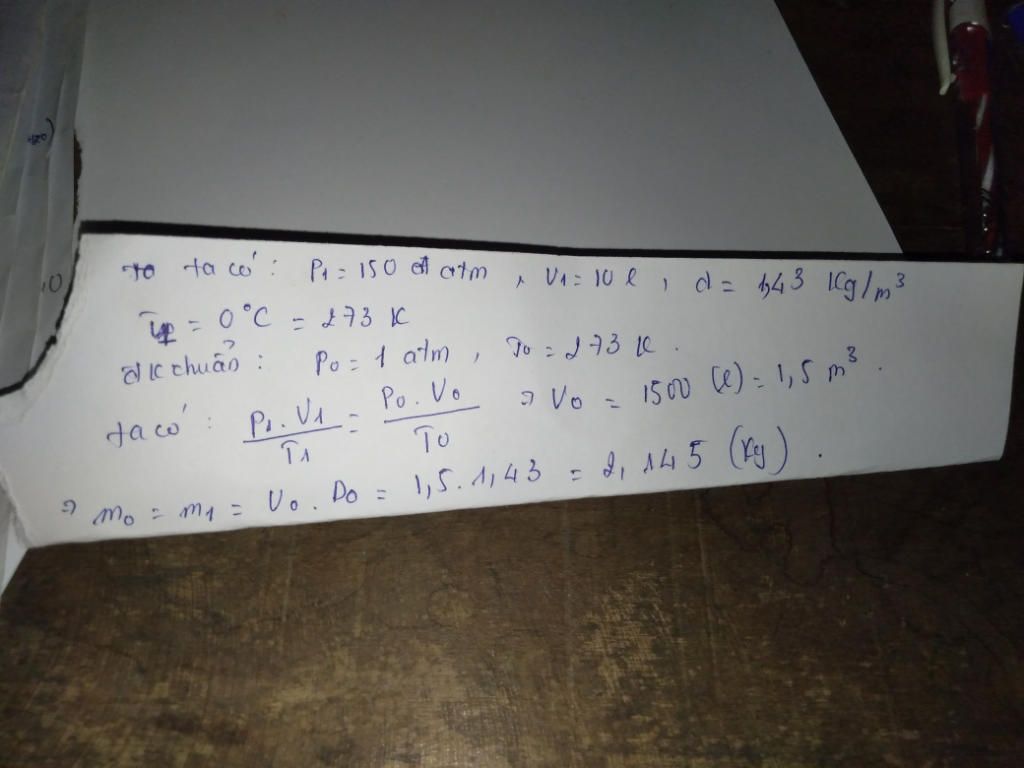 ta có : P1 = 150 atm , V1 = 10 l , d = 1,43 Kg/m³
= 0°C = 273 K
đk chuẩn : P0 = 1 atm , T0 = 273 K .
ta có : P1 . V1 / T1 = P0 . V0 / T0 => V0 = 1500 (l) = 1,5 m³ .
=> m0 = m1 = V0 . D0 = 1,5 . 1,43 = 2,145 (Kg) .